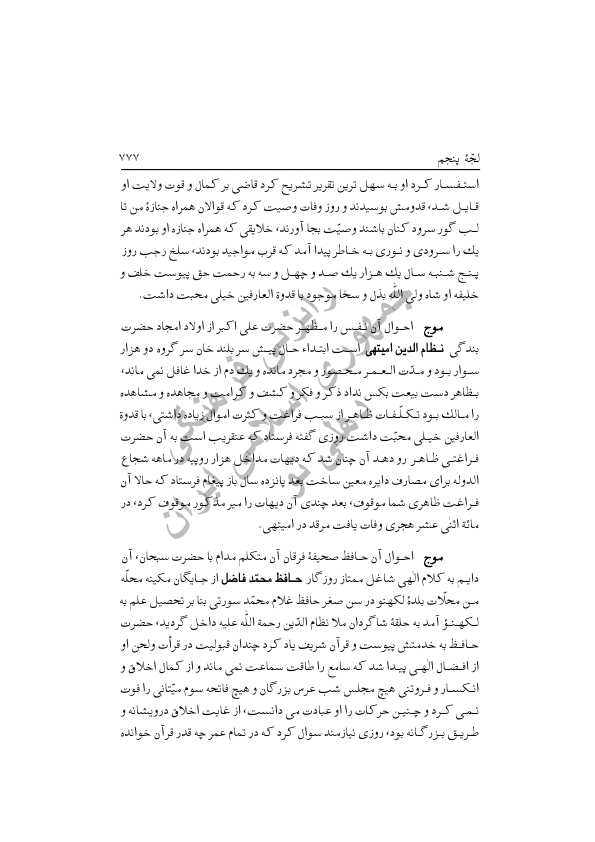 لجّهٔ پنجم ۷۷۷
استفسار کرد او به سهل ترین تقریر تشریح کرد قاضی بر کمال و قوت ولایت او
قایل شد، قدومش بوسیدند و روز وفات وصیت کرد که قوالان همراه جنازهٔ من تا
لب گور سرود کنان باشند وصیّت بجا آورند، خلایقی که همراه جنازه او بودند هر
یك را سرودی و نوری به خاطر پیدا آمد که قرب مواجید بودند، سلخ رجب روز
پنج شنبه سال یك هزار یك صد و چهل و سه به رحمت حق پیوست خلف و
خلیفه او شاه ولی الله بذل و سخا موجود با قدوة العارفین خیلی محبت داشت.
موج احوال آن نفس را مظهر حضرت علی اکبر از اولاد امجاد حضرت
بندگی نظام الدین امیتهی است ابتداء حال پیش سر بلند خان سر گروه دو هزار
سوار بود و مدّت العمر محصور و مجرد مانده و یك دم از خدا غافل نمی ماند،
بظاهر دست بیعت بکس نداد ذکر و فکر و کشف و کرامت و مجاهده و مشاهده
را مالك بود تکلّفات ظاهر از سبب فراغت و کثرت اموال زیاده داشتی، با قدوة
العارفین خیلی محبّت داشت روزی گفته فرستاد که عنقریب است به آن حضرت
فراغتی ظاهر رو دهد آن چنان شد که دیهات مداخل هزار روپیه در ماهه شجاع
الدوله برای مصارف دایره معین ساخت بعد پانزده سال باز پیغام فرستاد که حالا آن
فراغت ظاهری شما موقوف، بعد چندی آن دیهات را میر مذکور موقوف کرد، در
مائة اثنٰی عشر هجری وفات یافت مرقد در امیتهی.
موج احوال آن حافظ صحیفهٔ فرقان آن متکلم مدام با حضرت سبحان، آن
دایم به کلام الٰهی شاغل ممتاز روزگار حافظ محمّد فاضل از جایگان مکینه محلّه
من محلّات بلدهٔ لکهنو در سن صغر حافظ غلام محمّد سورتی بنا بر تحصیل علم به
لکهنؤ آمد به حلقهٔ شاگردان ملا نظام الدّین رحمة الله علیه داخل گردید، حضرت
حافظ به خدمتش پیوست و قرآن شریف یاد کرد چندان قبولیت در قرأت ولحن او
از افضال الٰهی پیدا شد که سامع را طاقت سماعت نمی ماند و از کمال اخلاق و
انکسار و فروتنی هیچ مجلس شب عرس بزرگان و هیچ فاتحه سوم میّتانی را فوت
نمی کرد و چنین حرکات را او عبادت می دانست، از غایت اخلاق درویشانه و
طریق بزرگانه بود، روزی نیازمند سوال کرد که در تمام عمر چه قدر قرآن خوانده
رایزنی فرهنگی
جمهوری اسلامی ایران
دهلی نو